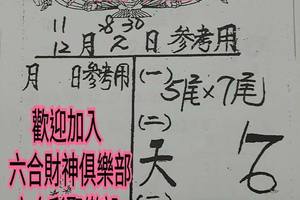 11 8 30
12月 日參考用
月 日參考用
(一) 5尾×7尾
(二)
天
歡迎加入
六合財神俱樂部